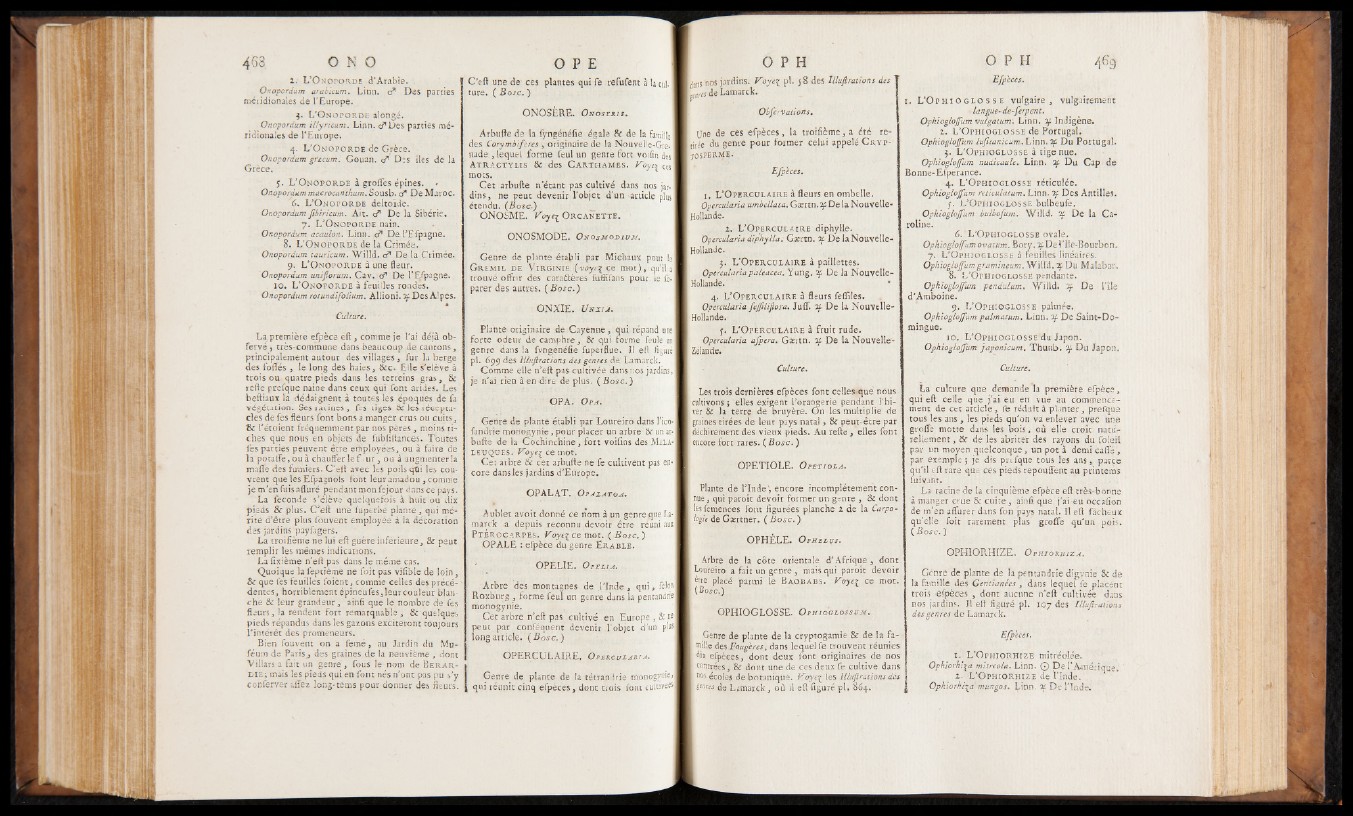 468 ONO OPE
2. L'ONOPORDE d'Arabie.
Onopordum arabicum. Linn. ♂ Des parties
méridionales de l'Europe.
3. L'ONOPORDE alongé.
Onopordum illyricum. Linn. ♂ Des parties mé-
ridionales de l'Europe.
4. L'ONOPORDE de Grèce.
Onopordum grecum. Gouan. ♂ Des iles de la
Grece.
5. L'ONOPORDE à grosses épines.
Onopordum macrocanthum. Sousb. ♂ De Maroc.
6. L'ONOPORDE deltoïde.
Onopordum sibiricum. Ait. ♂ De la Sibérie.
7. L'ONOPORDE nain.
Onopordum acaulon. Linn. ♂ De l'Espagne.
8. L'ONOPORDE de la Crimée.
Onopordum tauricum. Willd. ♂ De la Crimée.
9. L'ONOPORDE à une fleur.
Onopordum uniflorum. Cav. ♂ De l'Espagne.
10. L'ONOPORDE à feuilles rondes.
Onopordum rotundifolium. Allioni. ♃ Des Alpes.
Culture.
La première espèce est, comme je l'ai déjà ob-
servé, très-commune dans beaucoup de cantons,
principalement autour des villages, sur la berge
des fossés, le long des haies, &c. Elle s'élève à
trois ou quatre pieds dans les terreins gras, &
reste presque naine dans ceux qui sont arides. Les
bestiaux la dédaignent à toutes les époques de sa
végétation. Ses racines, ses tiges & les récepta-
cles de ses fleurs sont bons à manger crus ou cuits,
& l'étoient fréquemment par nos pères, moins ri-
ches que nous en objets de subsistances. Toutes
ses parties peuvent être employées, ou à faire de
la potasse, ou à chauffer le four, ou à augmenter la
masse des fumiers. C'est avec les poils qui les cou-
vrent que les Espagnols font leur amadou, comme
je m'en suis assuré pendant mon séjour dans ce pays.
La seconde s'élève quelquefois à huit ou dix
pieds & plus. C'est une superbe plante, qui mé-
rite d'être plus souvent employée à la décoration
des jardins paysagers.
La troisième ne lui est guère inférieure, & peut
remplir les mêmes indications.
La sixième n'est pas dans le même cas.
Quoique la septième ne soit pas visible de loin,
& que ses feuilles soient, comme celles des précé-
dentes, horriblement épineuses, leur couleur blan-
che & leur grandeur, ainsi que le nombre de ses
fleurs, la rendent fort remarquable, & quelques
pieds répandus dans les gazons exciteront toujours
l'intérêt des promeneurs.
Bien souvent on a semé, au Jardin du Mu-
séum de Paris, des graines de la neuvième, dont
Villars a fait un genre, sous le nom de BERAR-
DIE; mais les pieds qui en sont nés n'ont pas pu s'y
conserver assez long-tems pour donner des fleurs.
C'est une de ces plantes qui se refusent à la cul-
ture. (Bosc.)
ONOSÈRE. ONOSERIS.
Arbuste de la syngénésie égale & de la famille
des Corymbifères, originaire de la Nouvelle-Gre-
nade, lequel forme seul un genre fort voisin des
ATRACTYLIS & des CARTHAMES. Voyez ces
mots.
Cet arbuste n'étant pas cultivé dans nos jar-
dins, ne peut devenir l'objet d'un article plus
étendu. (Bosc.)
ONOSME. Voyez ORCANETTE.
ONOSMODE. ONOSMODIUM.
Genre de plante établi par Michaux pour le
GREMIL DE VIRGINIE (voyez ce mot), qu'il a
trouvé offrir des caractères suffisans pour le sé-
parer des autres. (Bosc.)
ONXIE. UNXIA.
Plante originaire de Cayenne, qui répand une
forte odeur de camphre, & qui forme seule un
genre dans la syngénésie superflue. Il est figuré
pl. 699 des Illustrations des genres de Lamarck.
Comme elle n'est pas cultivée dans nos jardins,
je n'ai rien à en dire de plus. (Bosc.)
OPA. OPA.
Genre de plante établi par Loureiro dans l'ico-
sandrie monogynie, pour placer un arbre & un ar-
buste de la Cochinchine, fort voisins des MELA-
LEUQUES. Voyez ce mot.
Cet arbre & cet arbuste ne se cultivent pas en-
core dans les jardins d'Europe.
OPALAT. OPALATOA.
Aublet avoit donné ce nom à un genre que La-
marck a depuis reconnu devoir être réuni aux
PTÉROCARPES. Voyez ce mot. (Bosc.)
OPALE : espèce du genre ERABLE.
OPELIE. OPELIA.
Arbre des montagnes de l'Inde, qui, selon
Roxburg, forme seul un genre dans la pentandrie
monogynie.
Cet arbre n'est pas cultivé en Europe, & ne
peut par conséquent devenir l'objet d'un plus
long article. (Bosc.)
OPERCULAIRE. OPERCULARIA.
Genre de plante de la tétrandrie monogynie,
qui réunit cinq espèces, dont trois sont cultivées
OPH OPH 469
dans nos jardins. Voyez pl. 58 des Illustrations des
genres de Lamarck.
Observations.
Une de ces espèces, la troisième, a été re-
tirée du genre pour former celui appelé CRYP-
TOSPERME.
Espèces.
1. L'OPERCULAIRE à fleurs en ombelle.
Opercularia umbellata. Gærtn. ♃ De la Nouvelle-
Hollande.
2. L'OPERCULAIRE diphylle.
Opercularia diphylla. Gærtn. ♃ De la Nouvelle-
Hollande.
3. L'OPERCULAIRE à paillettes.
Opercularia paleacea. Yung. ♃ De la Nouvelle-
Hollande.
4. L'OPERCULAIRE à fleurs sessiles.
Opercularia sessiliflora. Juss. ♃ De la Nouvelle-
Hollande.
5. L'OPERCULAIRE à fruit rude.
Opercularia aspera. Gærtn. ♃ De la Nouvelle-
Zélande.
Culture.
Les trois dernières espèces sont celles que nous
cultivons; elles exigent l'orangerie pendant l'hi-
ver & la terre de bruyère. On les multiplie de
graines tirées de leur pays natal, & peut-être par
déchirement des vieux pieds. Au reste, elles sont
encore fort rares. (Bosc.)
OPETIOLE. OPETIOLA.
Plante de l'Inde, encore incomplétement con-
nue, qui paroit devoir former un genre, & dont
les semences sont figurées planche 2 de la Carpo-
logie de Gærtner. (Bosc.)
OPHÈLE. OPHELUS.
Arbre de la côte orientale d'Afrique, dont
Loureiro a fait un genre, mais qui paroit devoir
être placé parmi le BAOBABS. Voyez ce mot.
(Bosc.)
OPHIOGLOSSE. OPHIOGLOSSUM.
Genre de plante de la cryptogamie & de la fa-
mille des Fougères, dans lequel se trouvent réunies
dix espèces, dont deux sont originaires de nos
contrées, & dont une de ces deux se cultive dans
nos écoles de botanique. Voyez les Illustrations des
genres de Lamarck, où il est figuré pl. 864.
Espèces.
1. L'OPHIOGLOSSE vulgaire, vulgairement
langue-de-serpent.
Ophioglossum vulgatum. Linn. ♃ Indigène.
2. L'OPHIOGLOSSE de Portugal.
Ophioglossum lusitanicum. Linn. ♃ Du Portugal.
3. L'OPHIOGLOSSE à tige nue.
Ophioglossum nudicaule. Linn. ♃ Du Cap de
Bonne-Espérance.
4. L'OPHIOGLOSSE réticulée.
Ophioglossum reticulatum. Linn. ♃ Des Antilles.
5. L'OPHIOGLOSSE bulbeuse.
Ophioglossum bulbosum. Willd. ♃ De la Ca-
roline.
6. L'OPHIOGLOSSE ovale.
Ophioglossum ovatum. Bory. ♃ De l'Ile-Bourbon.
7. L'OPHIOGLOSSE à feuilles linéaires.
Ophioglossum gramineum. Willd. ♃ Du Malabar.
8. L'OPHIOGLOSSE pendante.
Ophioglossum pendulum. Willd. ♃ De l'île
d'Amboine.
9. L'OPHIOGLOSSE palmée.
Ophioglossum palmatum. Linn. ♃ De Saint-Do-
mingue.
10. L'OPHIOGLOSSE du Japon.
Ophioglossum japonicum. Thunb. ♃ Du Japon.
Culture.
La culture que demande la première espèce,
qui est celle que j'ai eu en vue au commence-
ment de cet article, se réduit à planter, presque
tous les ans, les pieds qu'on va enlever avec une
grosse motte dans les bois, où elle croit natu-
rellement, & de les abriter des rayons du soleil
par un moyen quelconque, un pot à demi cassé,
par exemple; je dis presque tous les ans, parce
qu'il est rare que ces pieds repoussent au printems
suivant.
La racine de la cinquième espèce est très-bonne
à manger crue & cuite, ainsi que j'ai eu occasion
de m'en assurer dans son pays natal. Il est fâcheux
qu'elle soit rarement plus grosse qu'un pois.
(Bosc.)
OPHIORHIZE. OPHIORHIZA.
Genre de plante de la pentandrie digynie & de
la famille des Gentianées, dans lequel se placent
trois espèces, dont aucune n'est cultivée dans
nos jardins. Il est figuré pl. 107 des Illustrations
des genres de Lamarck.
Espèces.
1. L'OPHIORHIZE mitréolée.
Ophiorhiza mitreola. Linn. ☉ De l'Amérique.
2. L'OPHIORHIZE de l'Inde.
Ophiorhiza mungos. Linn. ♃ De l'Inde.